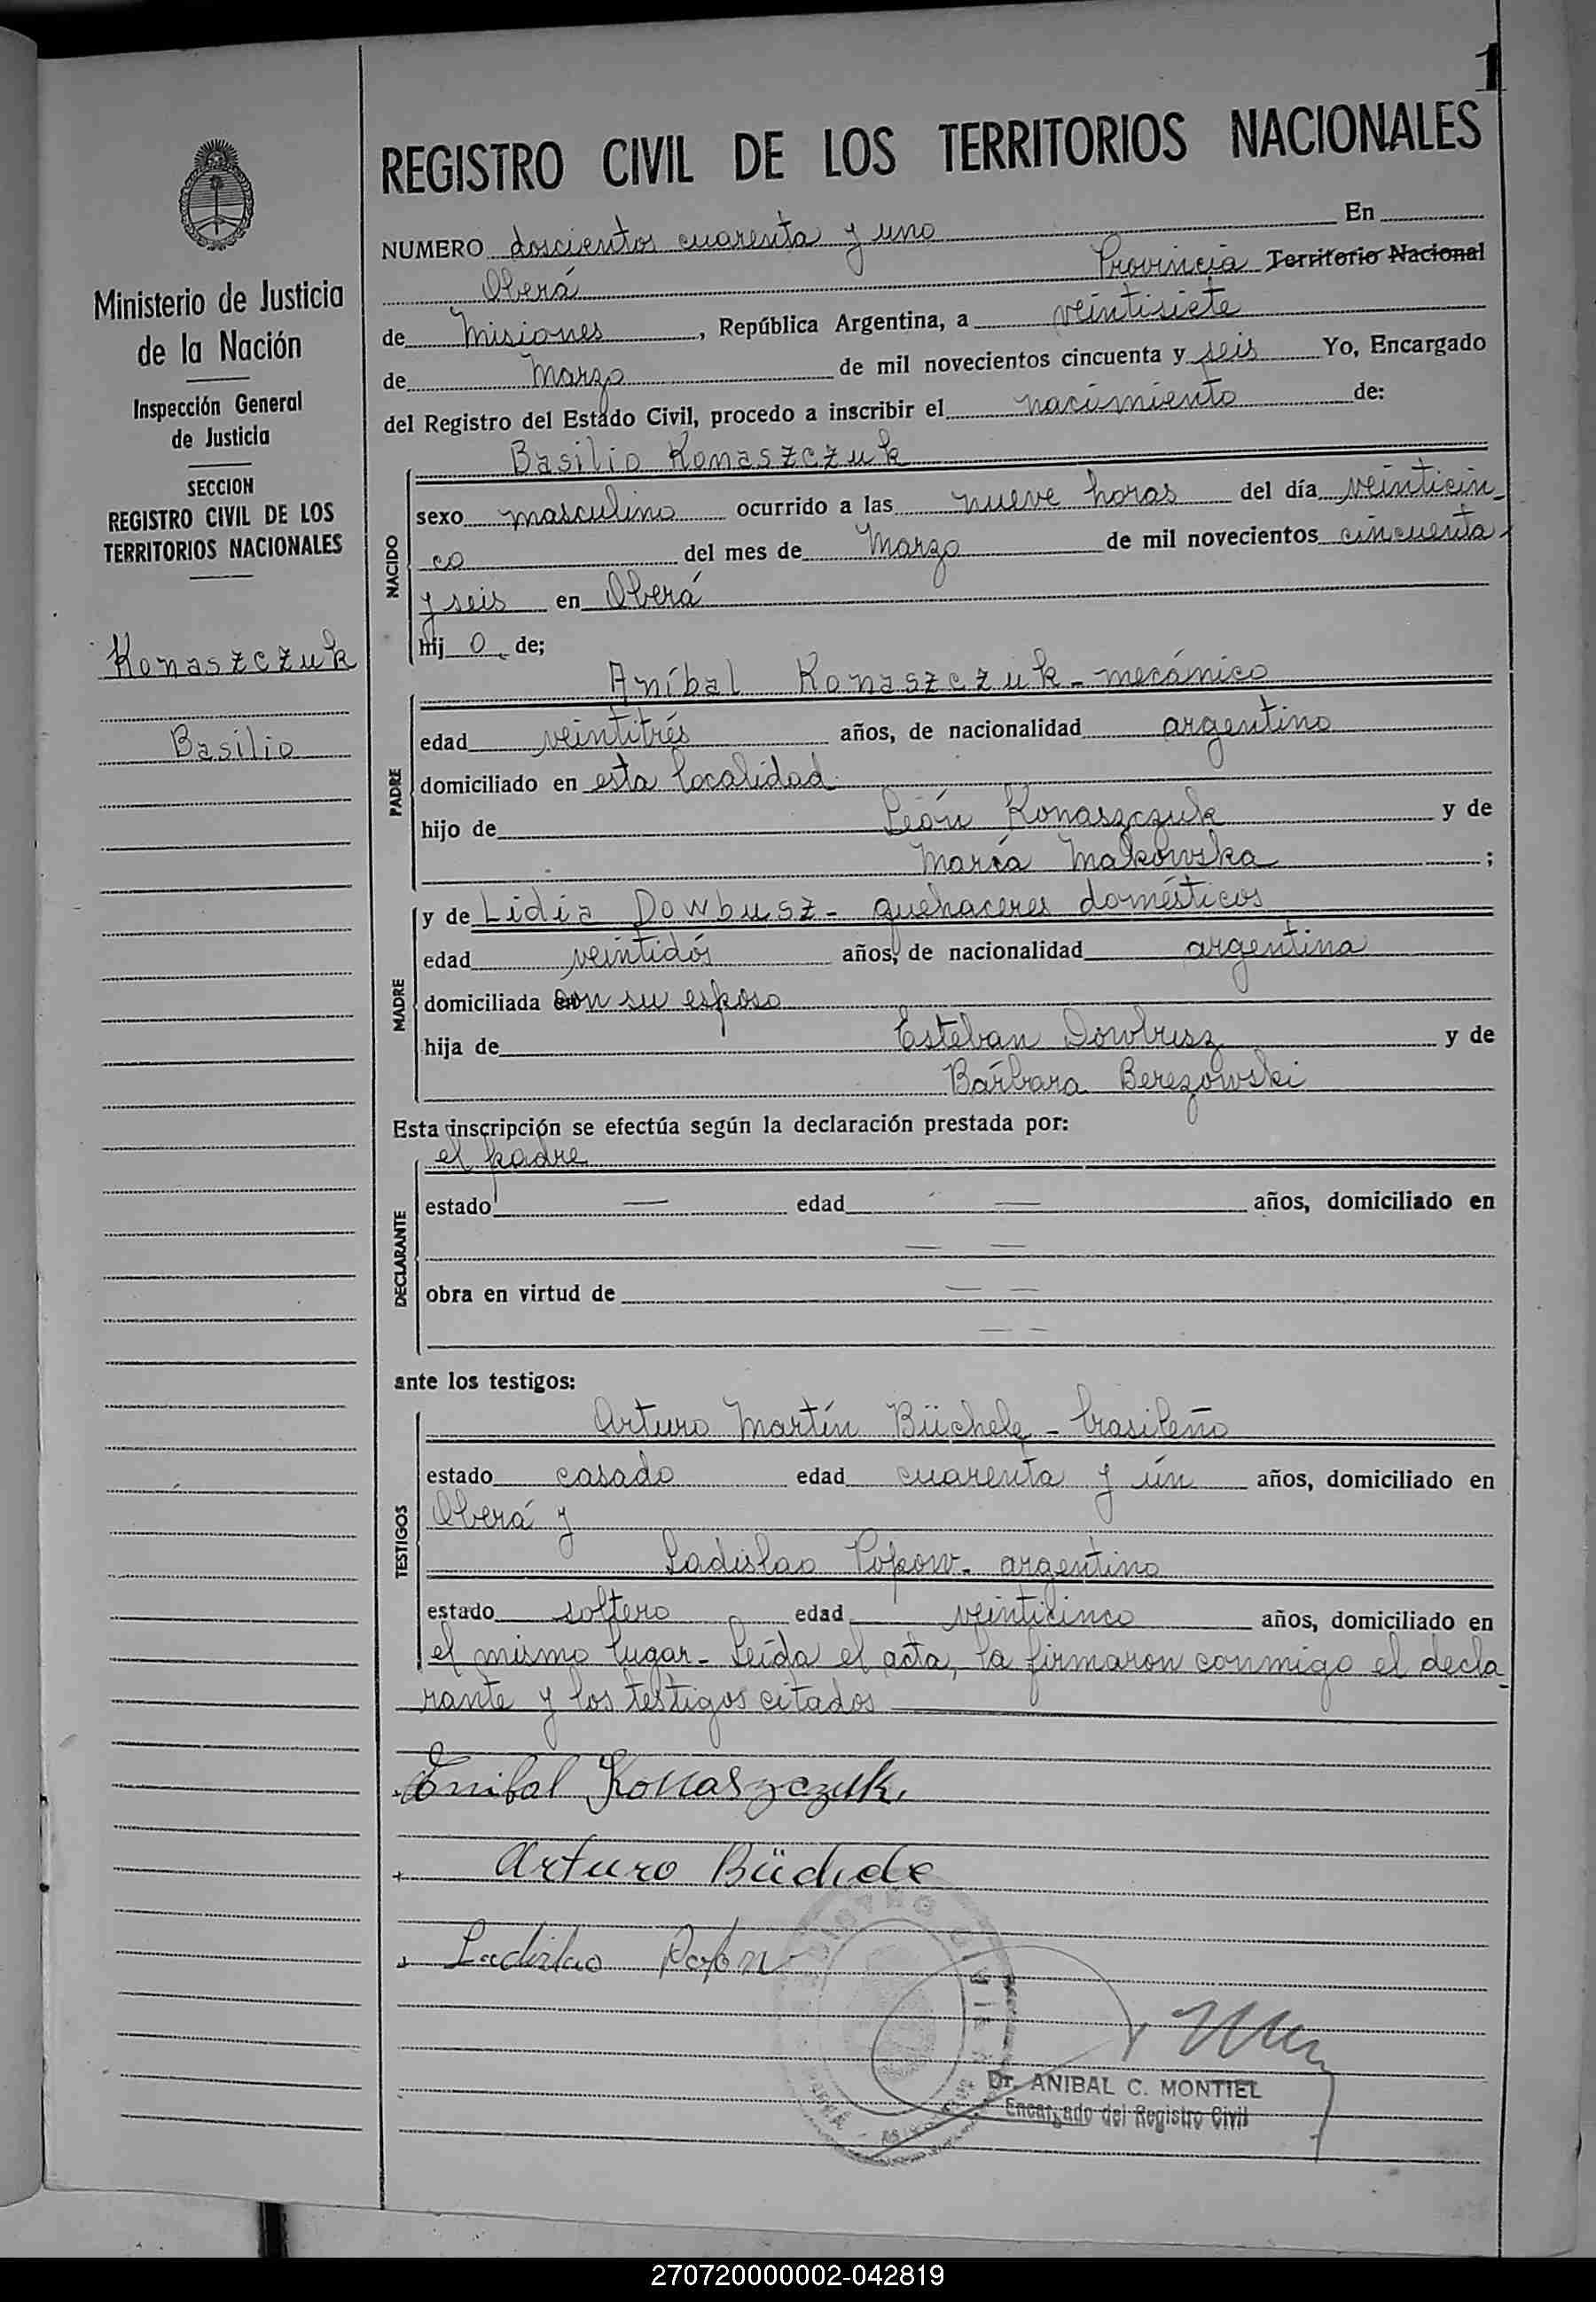 1
REGISTRO CIVIL DE LOS TERRITORIOS NACIONALES
Ministerio de Justicia
de la Nación
Inspección General
de Justicia
SECCION
REGISTRO CIVIL DE LOS
TERRITORIOS NACIONALES
Konaszczuk
Basilio
NUMERO doscientos cuarenta y uno En
Oberá Provincia Territorio Nacional
de Misiones, República Argentina, a veintisiete
de Marzo de mil novecientos cincuenta y seis Yo, Encargado
del Registro del Estado Civil, procedo a inscribir el nacimiento de:
NACIDO
Basilio Konaszczuk
sexo masculino ocurrido a las nueve horas del día veinticin-
co del mes de Marzo de mil novecientos cincuenta
y seis en Oberá
hij o de;
PADRE
Aníbal Konaszczuk - mecánico
edad veintitrés años, de nacionalidad argentino
domiciliado en esta localidad
hijo de León Konaszczuk y de
María Makowska ;
MADRE
y de Lidia Dowbusz - quehaceres domésticos
edad veintidós años, de nacionalidad argentina
domiciliada con su esposo
hija de Esteban Dowbusz y de
Bárbara Berezowski
Esta inscripción se efectúa según la declaración prestada por:
DECLARANTE
el padre
estado — edad — años, domiciliado en
— —
obra en virtud de — —
— —
ante los testigos:
TESTIGOS
Arturo Martín Büchele - brasileño
estado casado edad cuarenta y ún años, domiciliado en
Oberá y
Ladislao Popow - argentino
estado soltero edad veinticinco años, domiciliado en
el mismo lugar - Leída el acta, la firmaron conmigo el decla-
rante y los testigos citados
Anibal Konaszczuk
Arturo Büchele
Ladislao Popow
Dr. ANIBAL C. MONTIEL
Encargado del Registro Civil
270720000002-042819